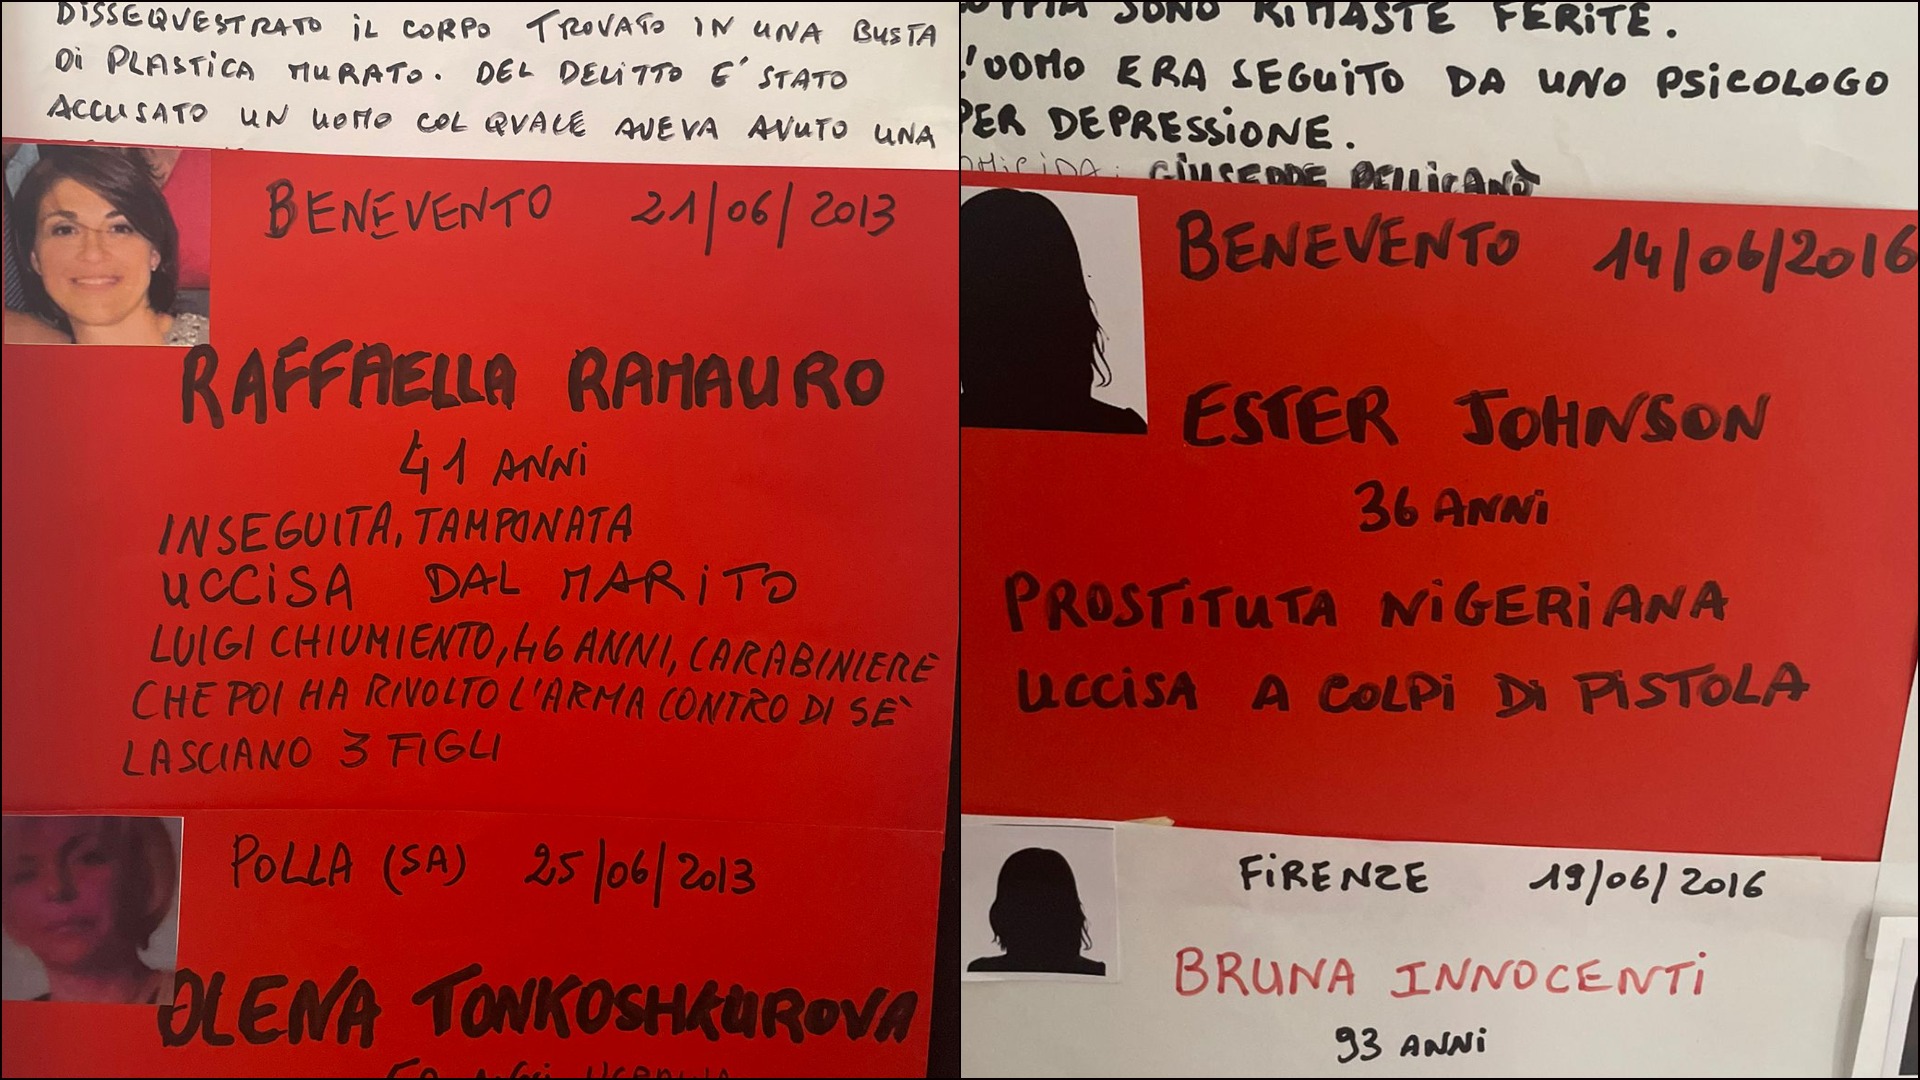 DISSEQUESTRATO IL CORPO TROVATO IN UNA BUSTA
DI PLASTICA MURATO. DEL DELITTO E' STATO
ACCUSATO UN UOMO COL QUALE AVEVA AVUTO UNA
BENEVENTO 21/06/2013
RAFFAELLA RAMAURO
41 ANNI
INSEGUITA, TAMPONATA
UCCISA DAL MARITO
LUIGI CHIUMIENTO, 46 ANNI, CARABINIERE
CHE POI HA RIVOLTO L'ARMA CONTRO DI SE'
LASCIANO 3 FIGLI
POLLA (SA) 25/06/2013
OLENA TONKOSHKUROVA
SONO RIMASTE FERITE.
L'UOMO ERA SEGUITO DA UNO PSICOLOGO
PER DEPRESSIONE.
OMICIDA: GIUSEPPE PELLICANÒ
BENEVENTO 14/06/2016
ESTER JOHNSON
36 ANNI
PROSTITUTA NIGERIANA
UCCISA A COLPI DI PISTOLA
FIRENZE 19/06/2016
BRUNA INNOCENTI
93 ANNI